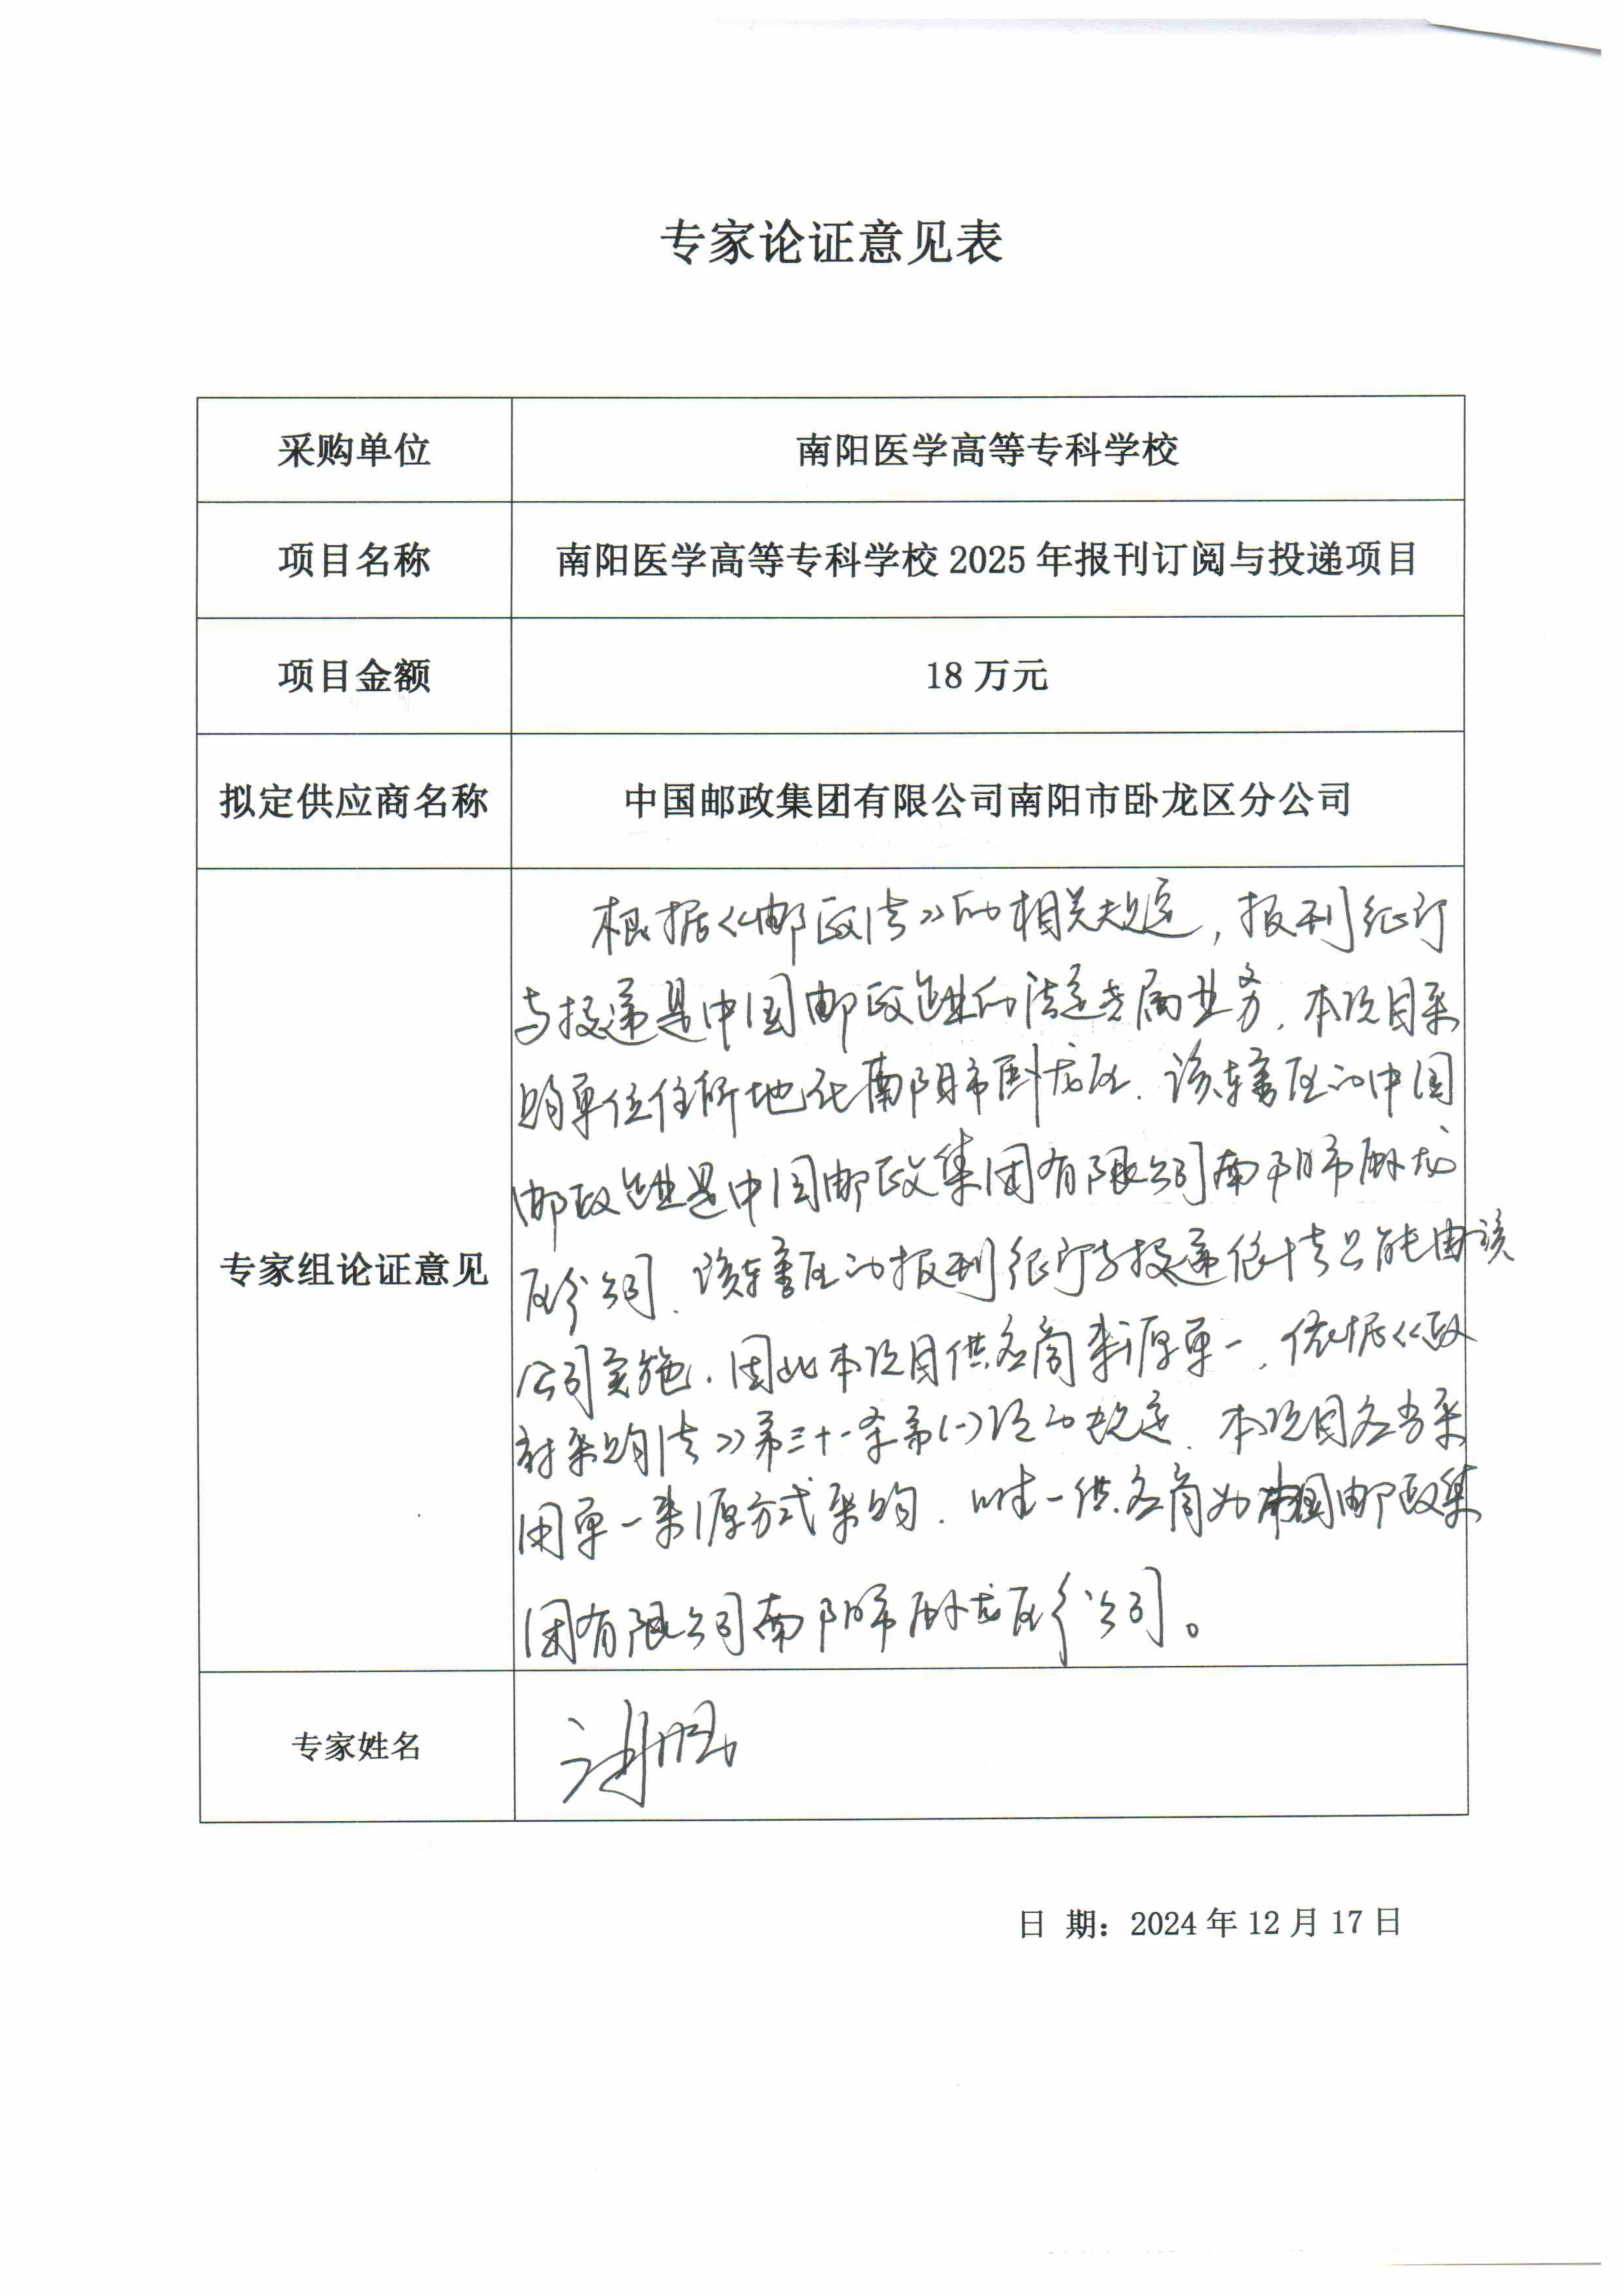 专家论证意见表
采购单位
南阳医学高等专科学校
项目名称
南阳医学高等专科学校 2025 年报刊订阅与投递项目
项目金额
18 万元
拟定供应商名称
中国邮政集团有限公司南阳市卧龙区分公司
专家组论证意见
根据《邮政法》的相关规定,报刊征订
与投递是中国邮政企业的法定专属业务.本项目采
购单位住所地在南阳市卧龙区.该辖区的中国
邮政企业是中国邮政集团有限公司南阳市卧龙
区分公司.该辖区的报刊征订与投递依法只能由该
公司实施.因此本项目供应商来源单一,依据《政
府采购法》第三十一条第(一)项的规定.本项目应当采
用单一来源方式采购.唯一供应商为中国邮政集
团有限公司南阳市卧龙区分公司。
专家姓名
日 期:2024 年 12 月 17 日